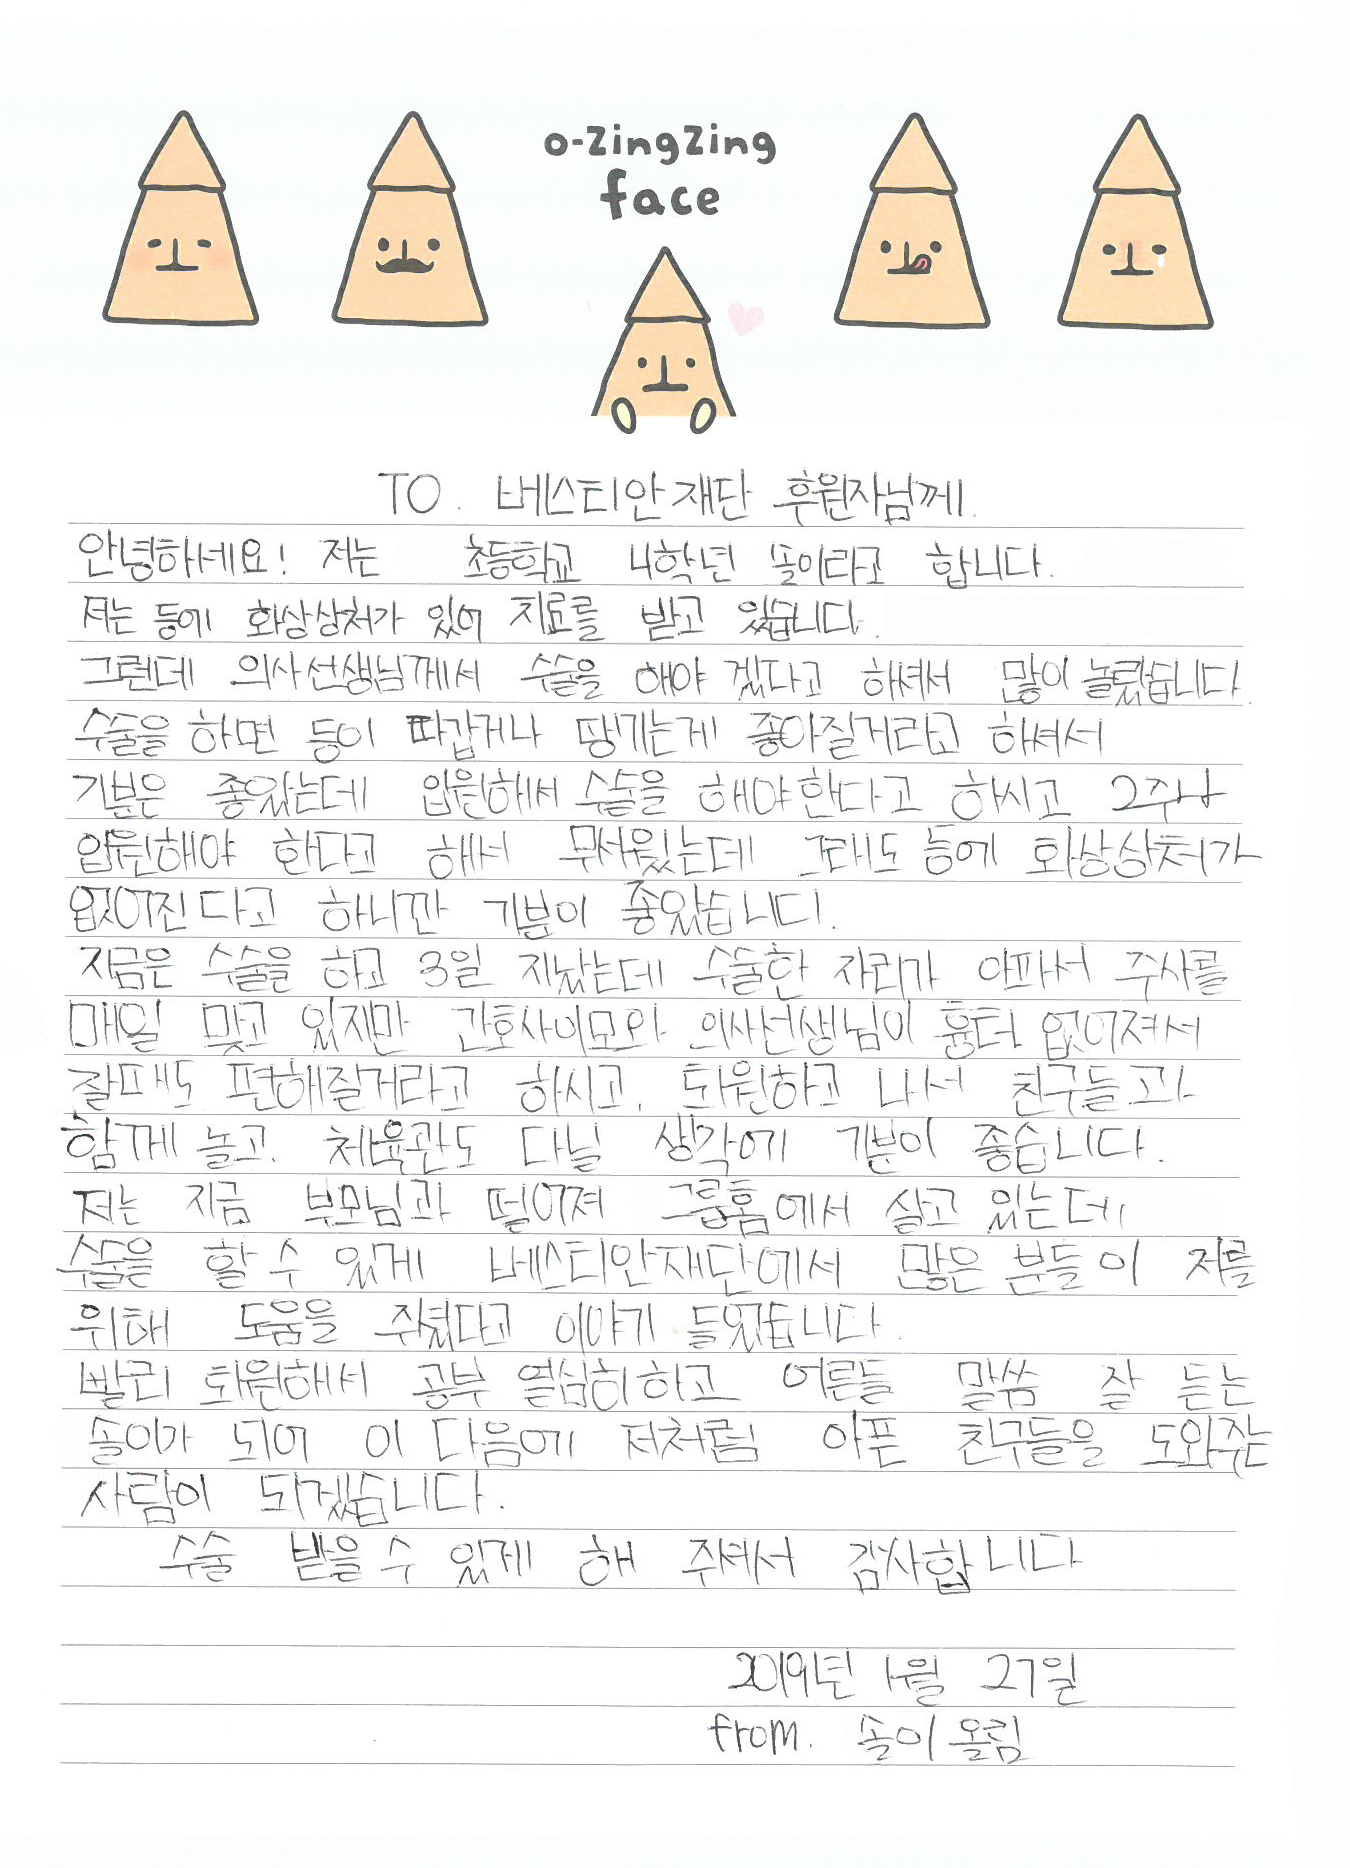 o-zingzing
face
TO. 베스티안재단 후원자님께.
안녕하세요! 저는 초등학교 4학년 솔이라고 합니다.
저는 등에 화상상처가 있어 치료를 받고 있습니다.
그런데 의사선생님께서 수술을 해야 겠다고 하셔서 많이 놀랐습니다.
수술을 하면 등이 따갑거나 땅기는게 좋아질거라고 하셔서
기분은 좋았는데 입원해서 수술을 해야한다고 하시고 2주나
입원해야 한다고 해서 무서웠는데 그래도 등에 화상상처가
없어진다고 하니깐 기분이 좋았습니다.
지금은 수술을 하고 3일 지났는데 수술한 자리가 아파서 주사를
매일 맞고 있지만 간호사이모와 의사선생님이 흉터 없어져서
잘때도 편해질거라고 하시고, 퇴원하고 나서 친구들고ㅏ
함께 놀고, 체육관도 다닐 생각에 기분이 좋습니다.
저는 지금 부모님과 떨어져 그룹홈에서 살고 있는데,
수술을 할 수 있게 베스티안재단에서 많은 분들이 저를
위해 도움을 주셨다고 이야기 들었습니다.
빨리 퇴원해서 공부 열심히하고 어른들 말씀 잘 듣는
솔이가 되어 이 다음에 저처럼 아픈 친구들을 도와주는
사람이 되겠습니다.
수술 받을 수 있게 해 주셔서 감사합니다
2019년 1월 27일
from. 솔이 올림